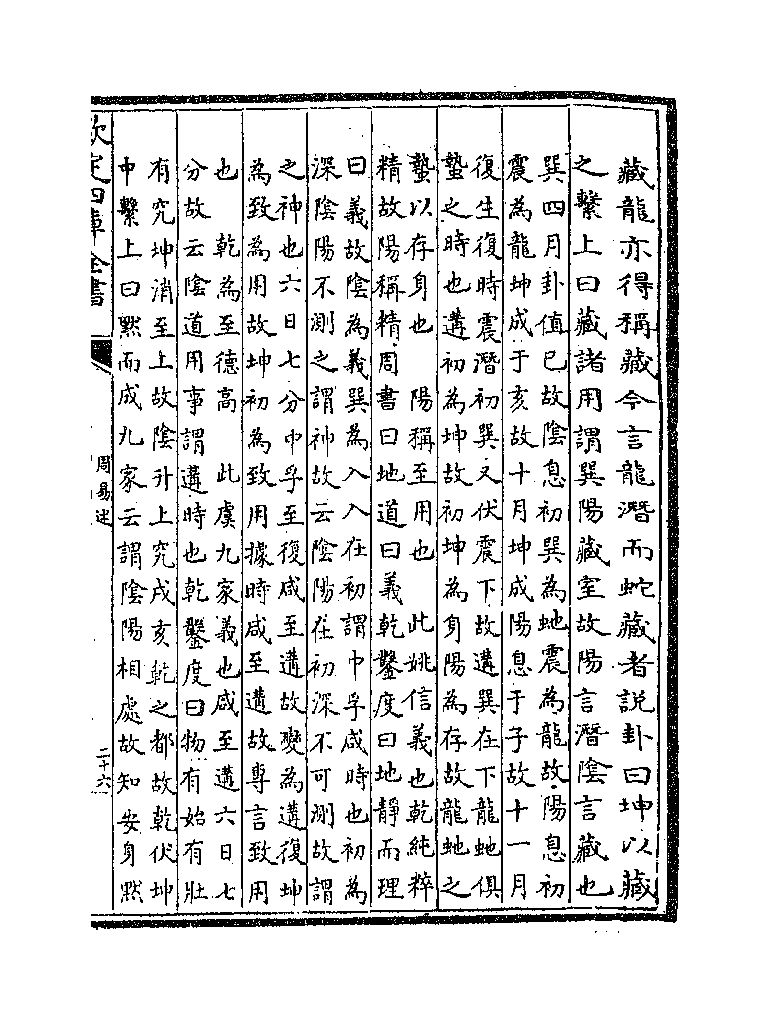 藏龍亦得稱藏今言龍潛而蛇藏者說卦曰坤以藏
之繫上曰藏諸用謂巽陽藏室故陽言潛陰言藏也
巽四月卦值巳故陰息初巽為虵震為龍故陽息初
震為龍坤成于亥故十月坤成陽息于子故十一月
復生復時震潛初巽又伏震下故遘巽在下龍虵俱
蟄之時也遘初為坤故初坤為身陽為存故龍虵之
蟄以存身也　陽稱至用也　此姚信義也乾純粹
精故陽稱精周書曰地道曰義乾鑿度曰地靜而理
曰義故陰為義巽為入入在初謂中孚咸時也初為
深陰陽不測之謂神故云陰陽在初深不可測故謂
之神也六日七分中孚至復咸至遘故變為遘復坤
為致為用故坤初為致用據時咸至遘故專言致用
也　乾為至德高　此虞九家義也咸至遘六日七
分故云陰道用事謂遘時也乾鑿度曰物有始有壯
有究坤消至上故陰升上究戌亥乾之都故乾伏坤
中繫上曰默而成九家云謂陰陽相處故知安身默
欽定四庫全書
周易述
二十六